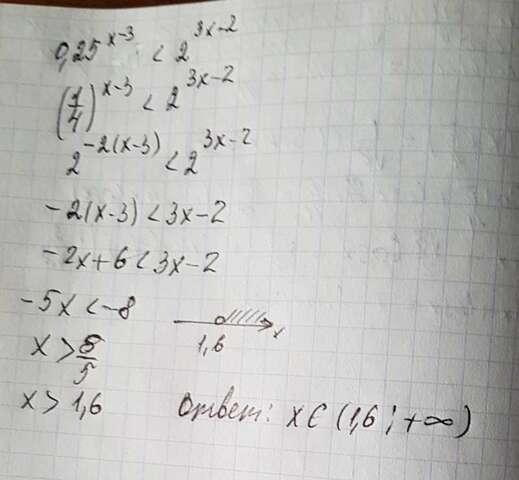 0,25^{x-3} < 2^{3x-2}
(1/4)^{x-3} < 2^{3x-2}
2^{-2(x-3)} < 2^{3x-2}
-2(x-3) < 3x-2
-2x+6 < 3x-2
-5x < -8
x > 8/5
1,6 x
x > 1,6
Ответ: x ∈ (1,6; +∞)